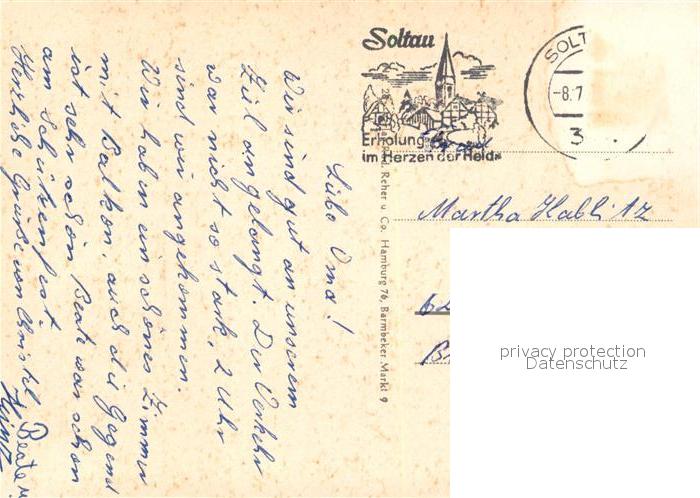 Liebe Oma!
Wir sind gut an unserem
Ziel angelangt. Der Verkehr
war nicht so stark, 2 Uhr
sind wir angekommen.
Wir haben ein schönes Zimmer
mit Balkon, auch die Gegend
ist sehr schön. Beate war schon
am Schützenfest
Herzliche Grüße von Christel Beate u
Heinz
Reher u. Co. Hamburg 76, Barmbeker Markt 9
Soltau
Erholung
im Herzen der Heide
SOLT
-8.7
3
Martha Hablitz
privacy protection
Datenschutz